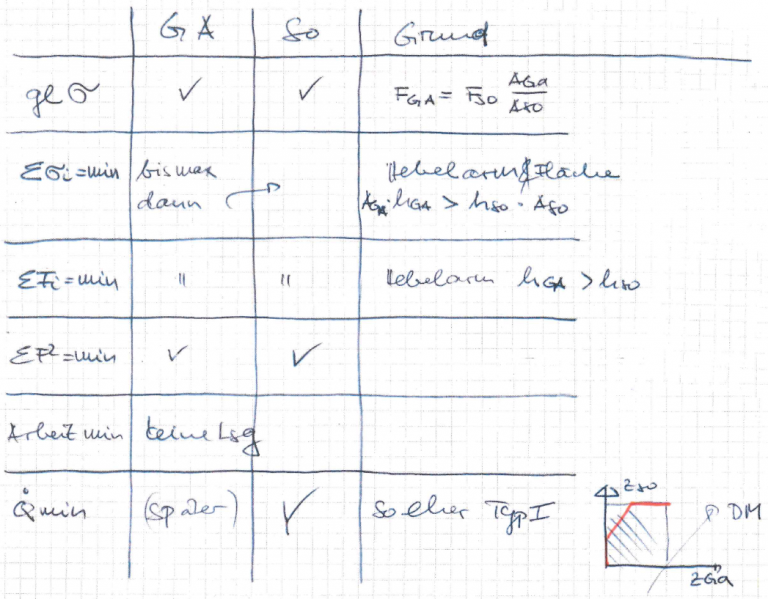 GA So Grund
glσ ✓ ✓ F_GA = F_SO A_Ga/A_so
Σσi=min bis max Hebelarm & Fläche
dann → A_GA·h_GA > h_so·A_so
ΣFi=min " " Hebelarm h_GA > h_so
ΣF²=min ✓ ✓
Arbeit min keine Lsg
Q̇ min (später) ✓ So eher Typ I
z_so
DM
z_Ga